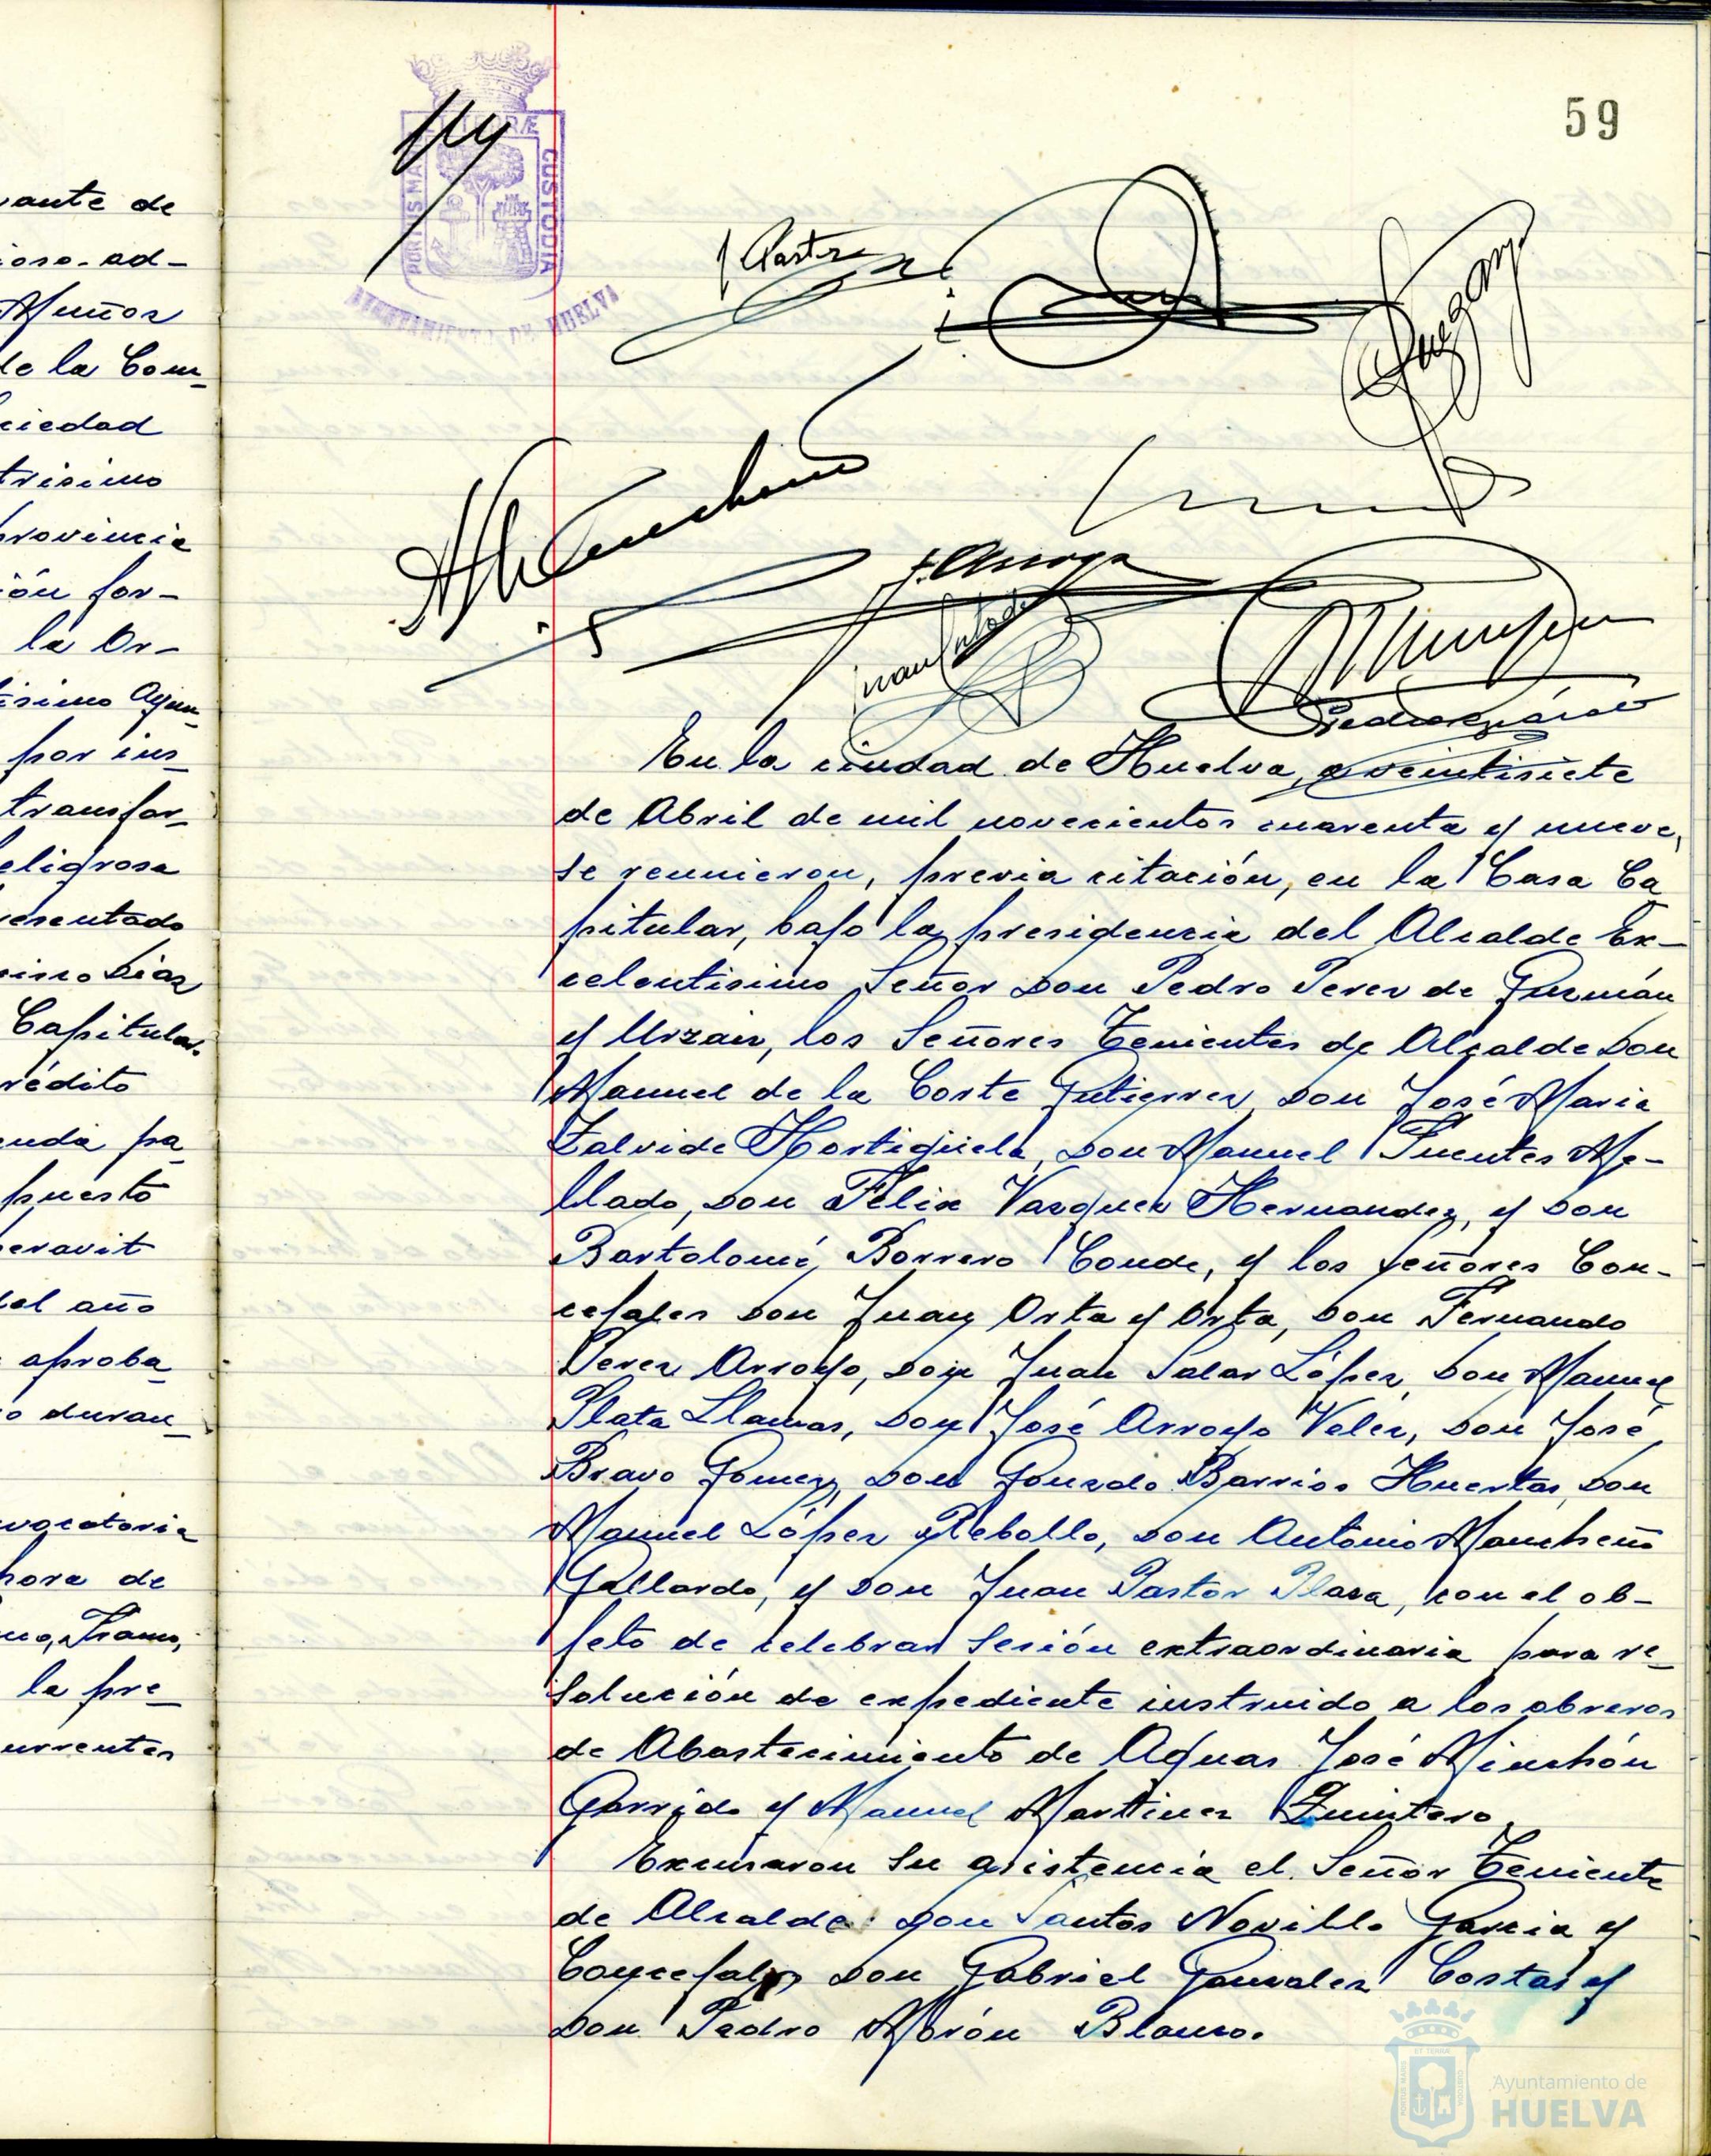 vante de
ioso-ad-
Muñoz
de la Com-
ciedad
trisimo
provincia
ión for-
la Or-
isimo Ayun-
por ins-
transfor-
eligrosa
resentado
Diaz
Capitular.
rédito
enda pa-
puesto
peravit
del año
aproba-
o duran-
vocatoria
hora de
la pre-
urrentes
59
PORTUS MARIS ET TERRÆ CUSTODIA
AYUNTAMIENTO DE HUELVA
J Pastor
J. Arroyo
En la ciudad de Huelva, a veintisiete
de Abril de mil novecientos cuarenta y nueve,
se reunieron, previa citación, en la Casa Ca
pitular, bajo la presidencia del Alcalde Ex-
celentisimo Señor Don Pedro Perez de Guzmán
y Urzaiz, los Señores Tenientes de Alcalde Don
Manuel de la Corte Gutierrez, Don José Maria
Zalvide Hortigüela, Don Manuel Fuentes Me-
llado, Don Felix Vazquez Hernandez, y Don
Bartolomé Borrero Conde, y los Señores Con-
cejales Don Juan Orta y Orta, Don Fernando
Perez Arroyo, Don Juan Salas López, Don Manuel
Plata Llamas, Don José Arroyo Velez, Don José
Bravo Gomez, Don Gonzalo Barrios Huertas, Don
Manuel López Rebollo, Don Antonio Mancheño
Gallardo, y Don Juan Pastor Plaza, con el ob-
jeto de celebrar Sesión extraordinaria para re-
solución de expediente instruido a los obreros
de Abastecimiento de Aguas José Minchón
Garrido y Manuel Martinez Quintero.
Excusaron su asistencia el Señor Teniente
de Alcalde Don Santos Novillo Garcia y
Concejales Don Gabriel Gonzalez Costas y
Don Pedro Morón Blanco.
Ayuntamiento de
HUELVA